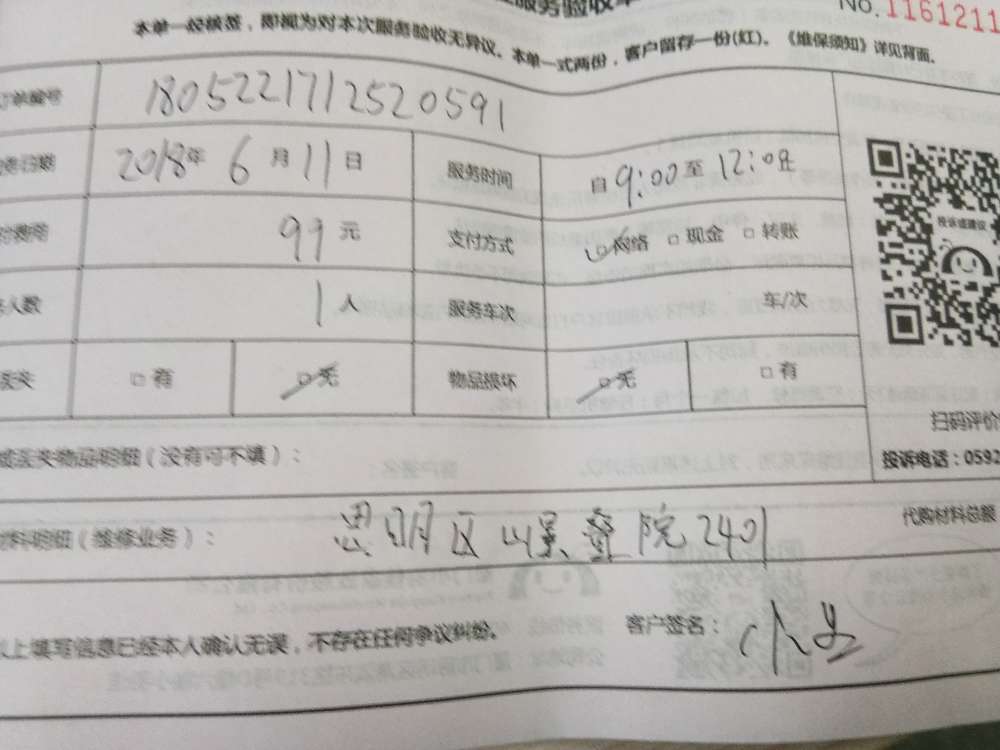 服务验收单
No.1161211
本单一经核签，即视为对本次服务验收无异议。本单一式两份，客户留存一份(红)。《维保须知》详见背面。
订单编号 1805221712520591
服务日期 2018年 6 月 11 日 服务时间 自 9:00 至 12:00
投诉或建议
付费用 99 元 支付方式 网络 □ 现金 □ 转账
人数 1 人 服务车次 车/次
丢失 □ 有 □ 无 物品损坏 □ 无 □ 有
扫码评价
或丢失物品明细（没有可不填）：
投诉电话：0592
材料明细（维修业务）： 思明区山景叠院2401 代购材料总额
以上填写信息已经本人确认无误，不存在任何争议纠纷。 客户签名：